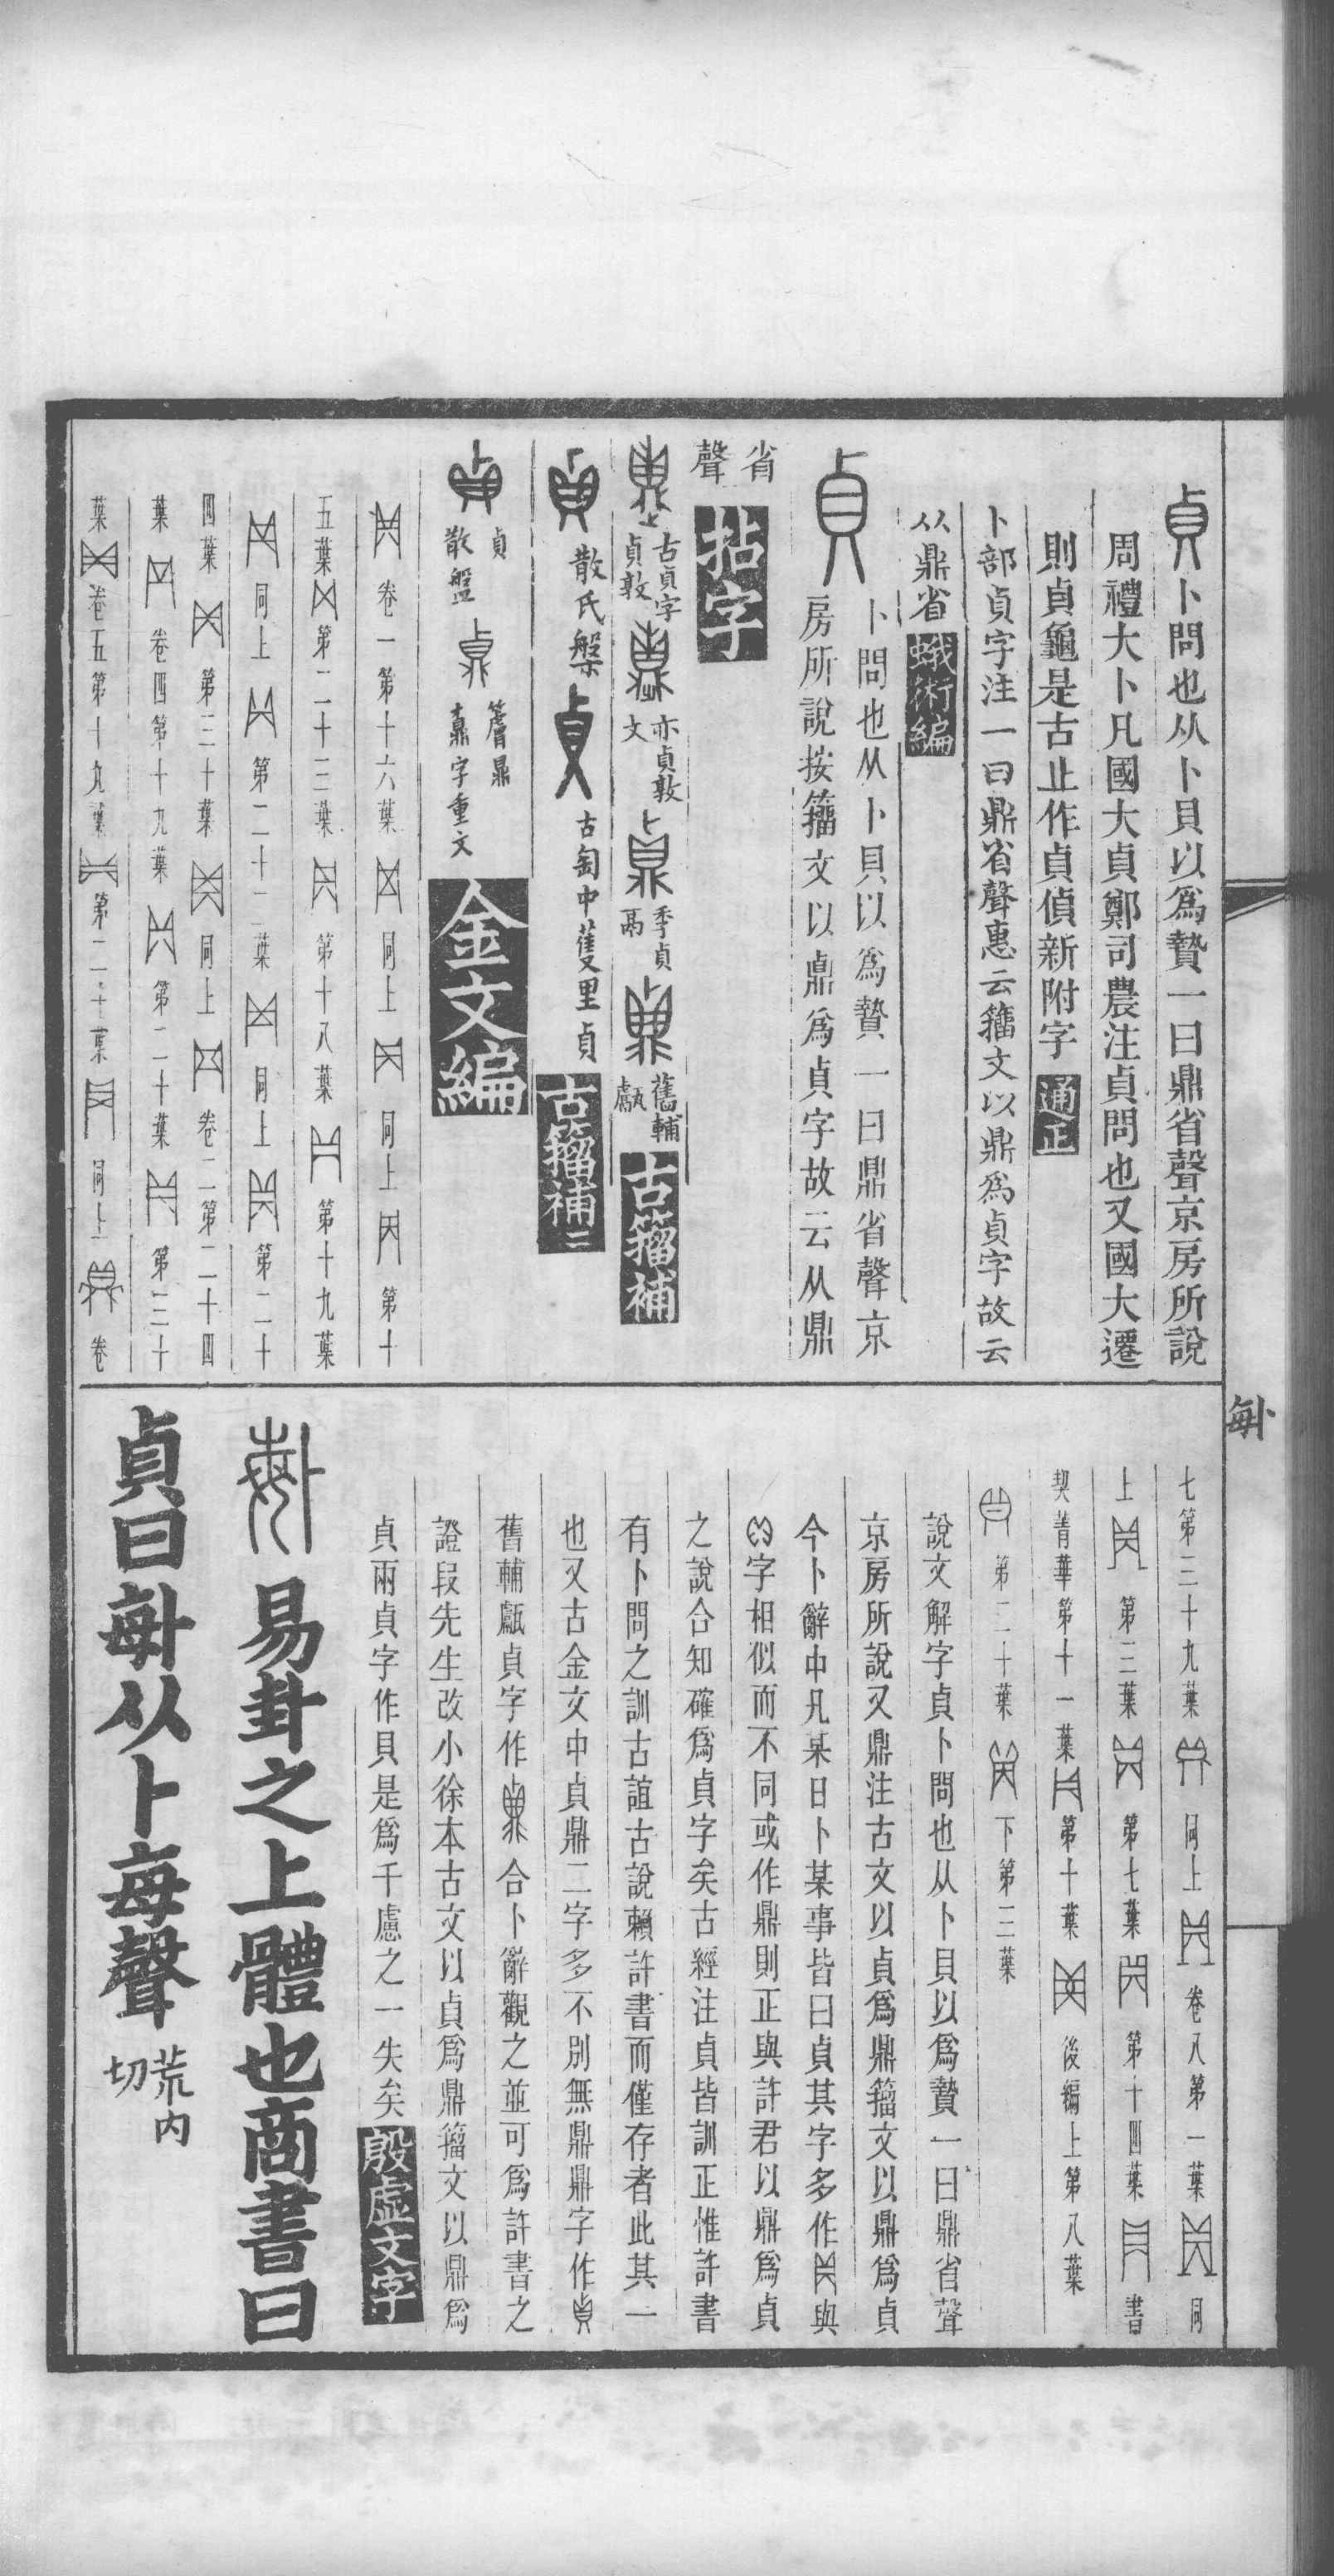 貞卜問也从卜貝以爲贄一曰鼎省聲京房所說
周禮大卜凡國大貞鄭司農注貞問也又國大遷
則貞龜是古止作貞偵新附字通正
卜部貞字注一曰鼎省聲惠云籒文以鼎爲貞字故云
从鼎省蛾術編
貞
卜問也从卜貝以爲贄一曰鼎省聲京
房所說按籒文以鼎爲貞字故云从鼎
省
聲
拈字
古貞字
貞敦
亦貞敦
文
季貞
鬲
舊輔
甗
古籀補
散氏槃
古匋中蒦里貞
古籀補二
貞
散盤
簷鼎
鼑字重文
金文編
卷一第十六葉 同上 同上 第十
五葉 第二十三葉 第十八葉 第十九葉
同上 第二十二葉 同上 第二十
四葉 第三十葉 同上 卷二第二十四
葉 卷四第十九葉 第二十葉 第三十
葉 卷五第十九葉 第二十葉 同上 卷
𠧩
七第三十九葉 同上 卷八第一葉 同
上 第三葉 第七葉 第十四葉 書
契菁華第十一葉 第十葉 後編上第八葉
第二十葉 下第三葉
說文解字貞卜問也从卜貝以爲贄一曰鼎省聲
京房所說又鼎注古文以貞爲鼎籒文以鼎爲貞
今卜辭中凡某日卜某事皆曰貞其字多作與
字相似而不同或作鼎則正與許君以鼎爲貞
之說合知確爲貞字矣古經注貞皆訓正惟許書
有卜問之訓古誼古說賴許書而僅存者此其一
也又古金文中貞鼎二字多不別無鼎鼎字作
舊輔甗貞字作合卜辭觀之並可爲許書之
證段先生改小徐本古文以貞爲鼎籒文以鼎爲
貞兩貞字作貝是爲千慮之一失矣殷虛文字
易卦之上體也商書曰
貞曰𠧩从卜每聲
荒内
切